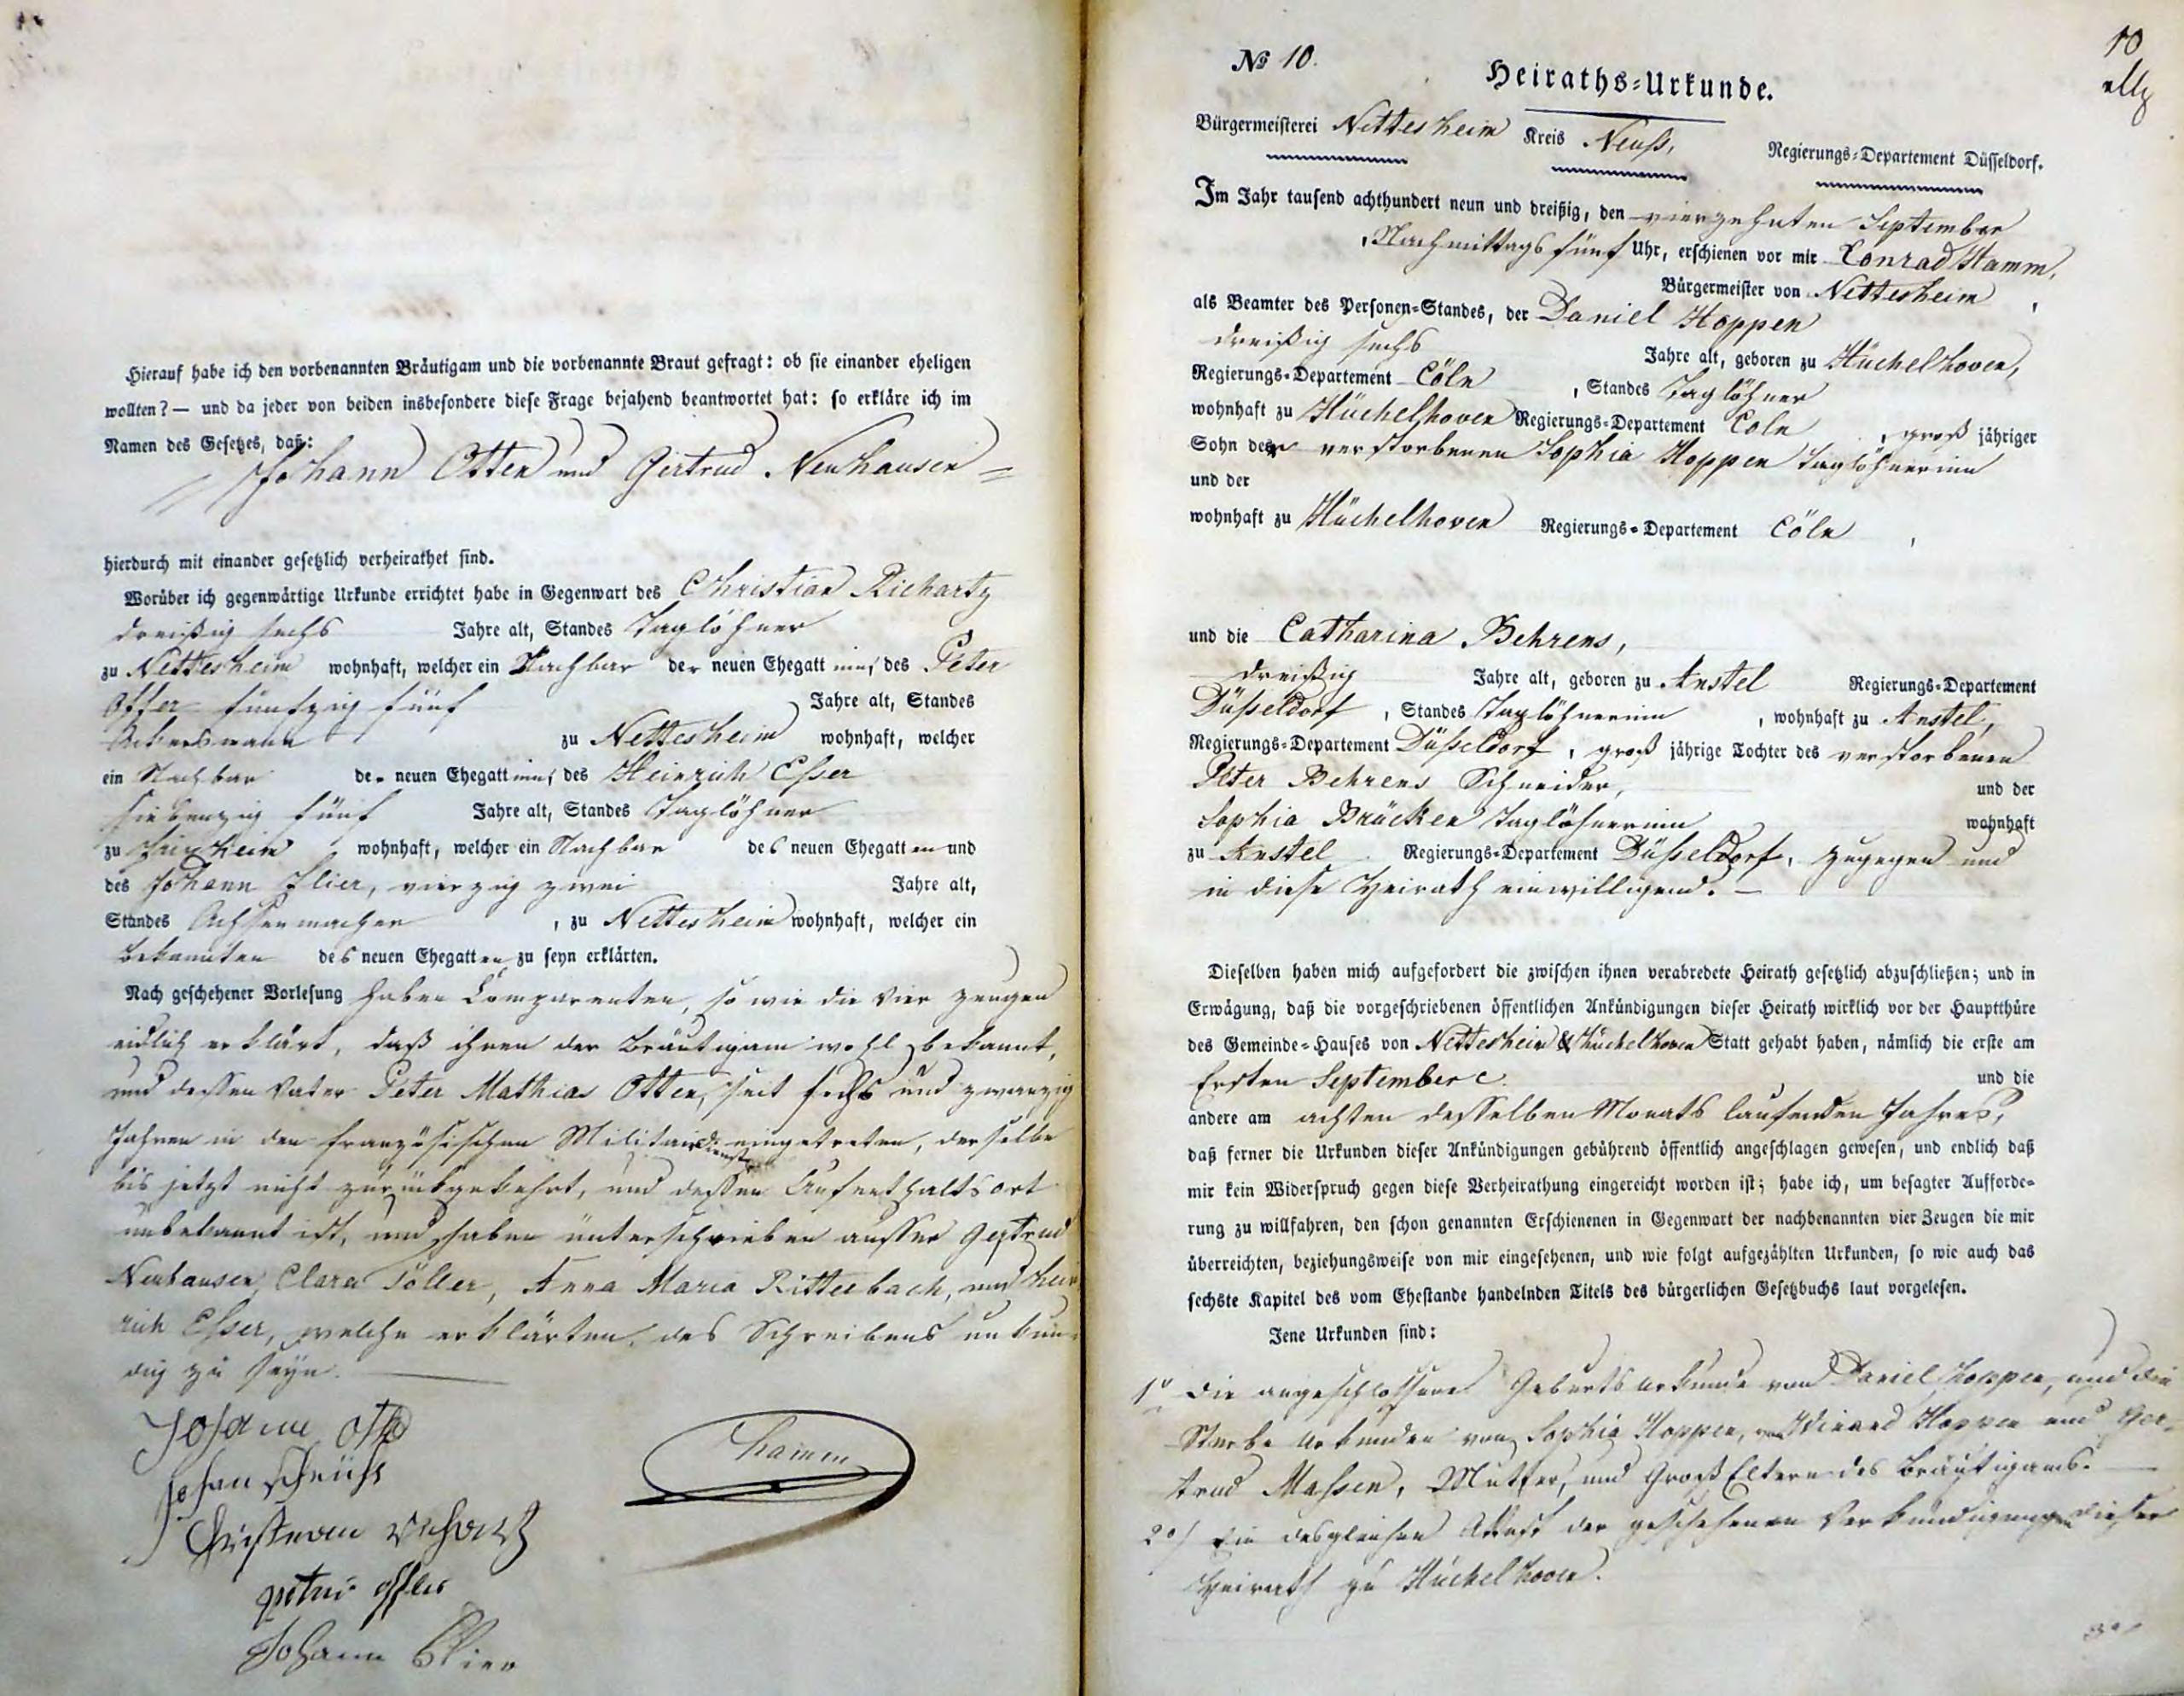 Hierauf habe ich den vorbenannten Bräutigam und die vorbenannte Braut gefragt: ob sie einander eheligen
wollten? — und da jeder von beiden insbesondere diese Frage bejahend beantwortet hat: so erkläre ich im
Namen des Gesetzes, daß:
Johann Otten und Gertrud Neuhausen
hierdurch mit einander gesetzlich verheirathet sind.
Worüber ich gegenwärtige Urkunde errichtet habe in Gegenwart des Christian Richartz
dreißig sechs Jahre alt, Standes Taglöhner
zu Nettesheim wohnhaft, welcher ein Nachbar der neuen Ehegattinn, des Peter
fünfzig fünf Jahre alt, Standes
Ackersmann zu Nettesheim wohnhaft, welcher
ein Nachbar der neuen Ehegattinn, des Heinrich Esser
siebenzig fünf Jahre alt, Standes Taglöhner
zu wohnhaft, welcher ein Nachbar des neuen Ehegatten und
des Johann Flier, vierzig zwei Jahre alt,
Standes Achsenmacher, zu Nettesheim wohnhaft, welcher ein
bekannten des neuen Ehegatten zu seyn erklärten.
Nach geschehener Vorlesung haben Comparenten, so wie die vier Zeugen
eidlich erklärt, daß ihnen der Bräutigam wohl bekannt,
und dessen Vater Peter Mathias Otten, seit sechs und zwanzig
Jahren in den französischen Militairdienst eingetreten, derselbe
bis jetzt nicht zurückgekehrt, und dessen Aufenthaltsort
unbekannt ist, und haben unterschrieben ausser Gertrud
Neuhausen, Clara Töller, Anna Maria Ritterbach, und Hein
rich Esser, welche erklärten, des Schreibens unkun-
dig zu seyn.
Johann
Johan
Johann Flier
Hamm
10
No 10.
Heiraths-Urkunde.
Bürgermeisterei Nettesheim Kreis Neuss, Regierungs-Departement Düsseldorf.
Im Jahr tausend achthundert neun und dreißig, den vierzehnten September
Nachmittags fünf Uhr, erschienen vor mir Conrad Hamm,
Bürgermeister von Nettesheim,
als Beamter des Personen-Standes, der Daniel Hoppen
dreißig sechs Jahre alt, geboren zu Hüchelhoven,
Regierungs-Departement Cöln, Standes Taglöhner
wohnhaft zu Hüchelhoven Regierungs-Departement Cöln, groß jähriger
Sohn der verstorbenen Sophia Hoppen Taglöhnerinn
und der
wohnhaft zu Hüchelhoven Regierungs-Departement Cöln,
und die Catharina Behrens,
dreißig Jahre alt, geboren zu Anstel Regierungs-Departement
Düsseldorf, Standes Taglöhnerinn, wohnhaft zu Anstel,
Regierungs-Departement Düsseldorf, groß jährige Tochter des verstorbenen
Peter Behrens Schneider, und der
Sophia Brücken Taglöhnerinn wohnhaft
zu Anstel Regierungs-Departement Düsseldorf, zugegen und
in diese Heirath einwilligend. —
Dieselben haben mich aufgefordert die zwischen ihnen verabredete Heirath gesetzlich abzuschließen; und in
Erwägung, daß die vorgeschriebenen öffentlichen Ankündigungen dieser Heirath wirklich vor der Hauptthüre
des Gemeinde-Hauses von Nettesheim & Hüchelhoven Statt gehabt haben, nämlich die erste am
Ersten September c. und die
andere am achten desselben Monats laufenden Jahres,
daß ferner die Urkunden dieser Ankündigungen gebührend öffentlich angeschlagen gewesen, und endlich daß
mir kein Widerspruch gegen diese Verheirathung eingereicht worden ist; habe ich, um besagter Aufforde-
rung zu willfahren, den schon genannten Erschienenen in Gegenwart der nachbenannten vier Zeugen die mir
überreichten, beziehungsweise von mir eingesehenen, und wie folgt aufgezählten Urkunden, so wie auch das
sechste Kapitel des vom Ehestande handelnden Titels des bürgerlichen Gesetzbuchs laut vorgelesen.
Jene Urkunden sind:
1o die angeschlossene Geburtsurkunde von Daniel Hoppen, und die
Sterbe Urkunden von Sophia Hoppen, von Winand Hoppen und Ger-
trud Massen, Mutter, und Groß Eltern des Bräutigams. —
2o/ Ein desgleichen Attest der geschehenen Verkündigungen dieser
Heirath zu Hüchelhoven.
3o/